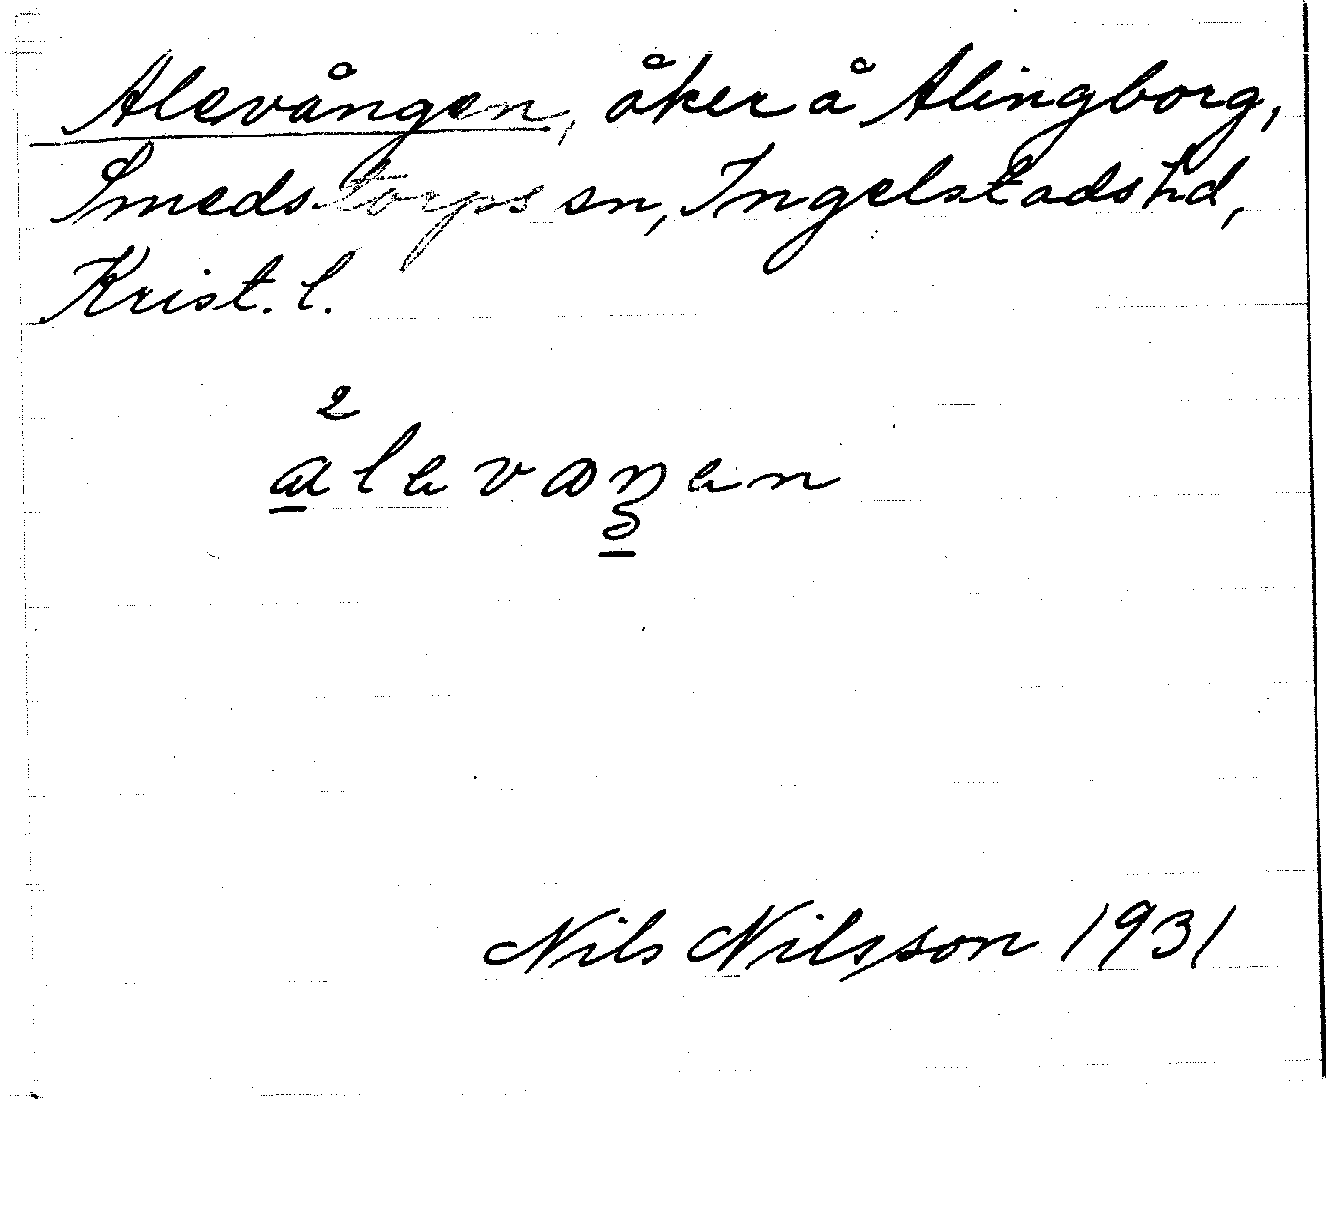 Alevången, åker å Alingborg,
Smedstorps sn, Ingelstads hd,
Krist. l.
Nils Nilsson 1931